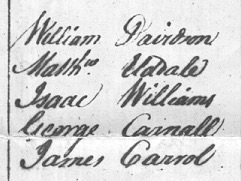 William Davidson
Matths. Udale
Isaac Williams
George Carnall
James Carrol